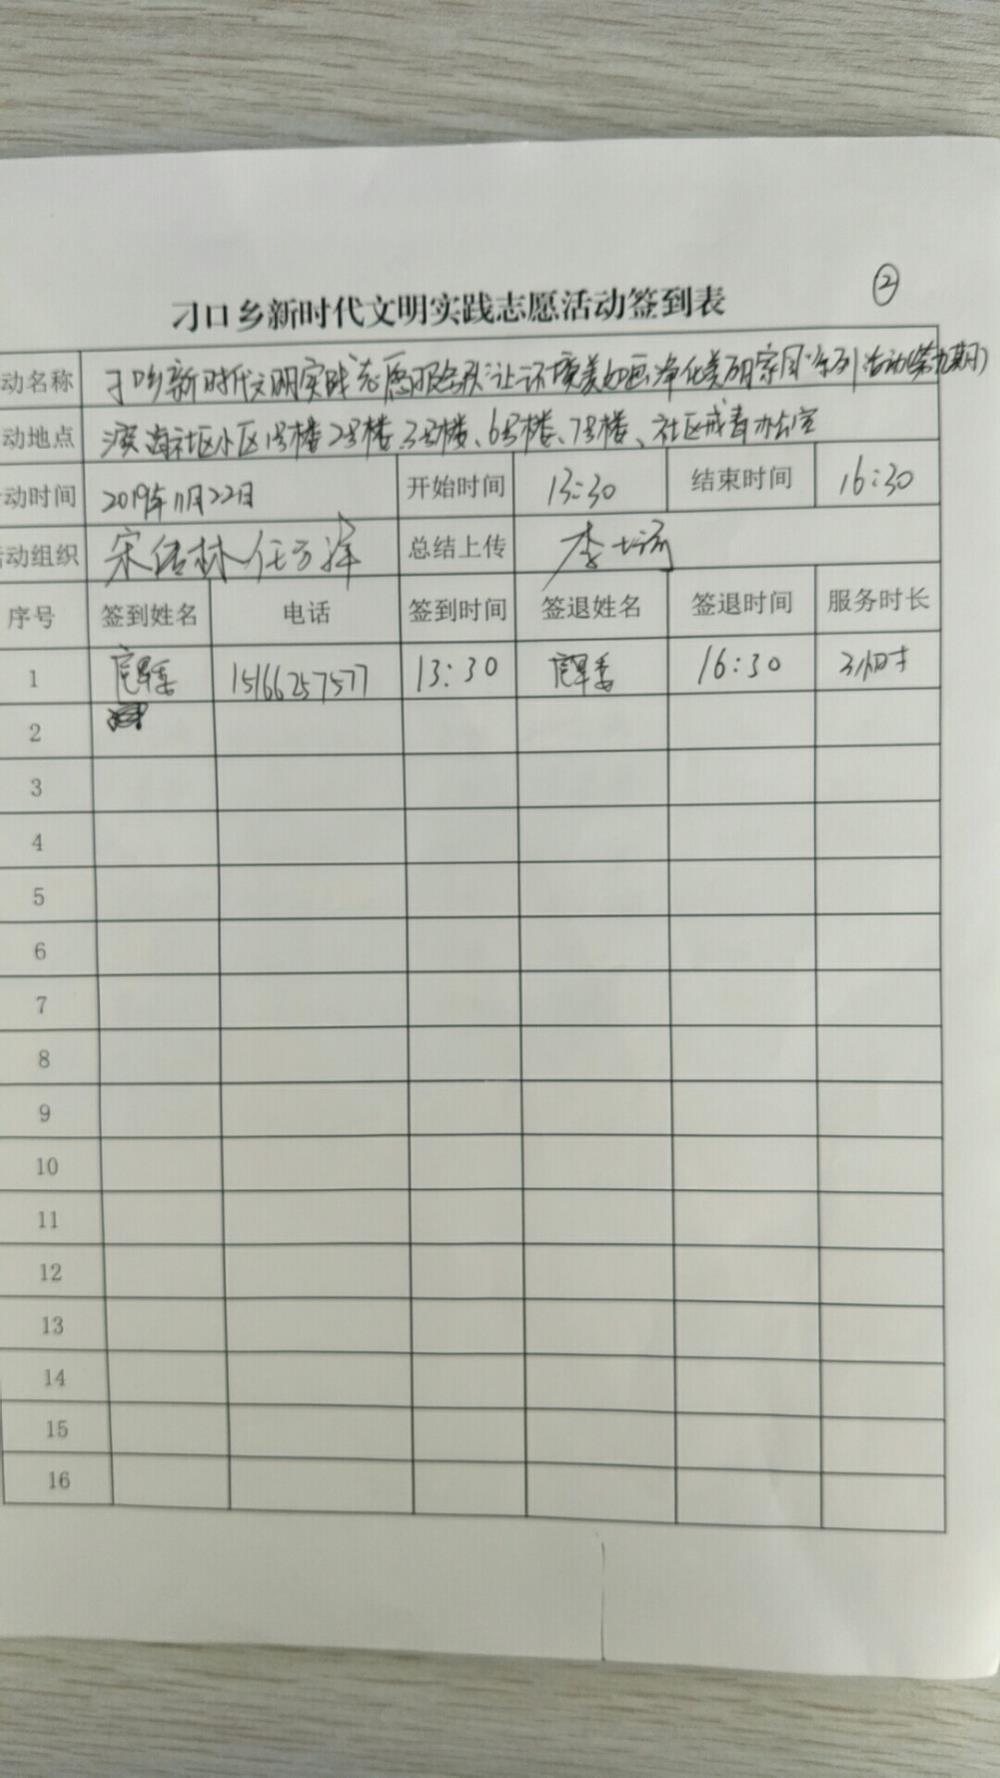 ②
刁口乡新时代文明实践志愿活动签到表
动名称 刁口乡新时代文明实践志愿服务队"让环境美如画,净化美丽家园"系列活动(第九期)
动地点 滨海社区小区1号楼、2号楼、3号楼、6号楼、7号楼、社区戒毒办公室
动时间 2019年11月22日 开始时间 13:30 结束时间 16:30
动组织 宋 林 任 总结上传 李
序号 签到姓名 电话 签到时间 签退姓名 签退时间 服务时长
1 15166257577 13:30 16:30 3小时
2
3
4
5
6
7
8
9
10
11
12
13
14
15
16